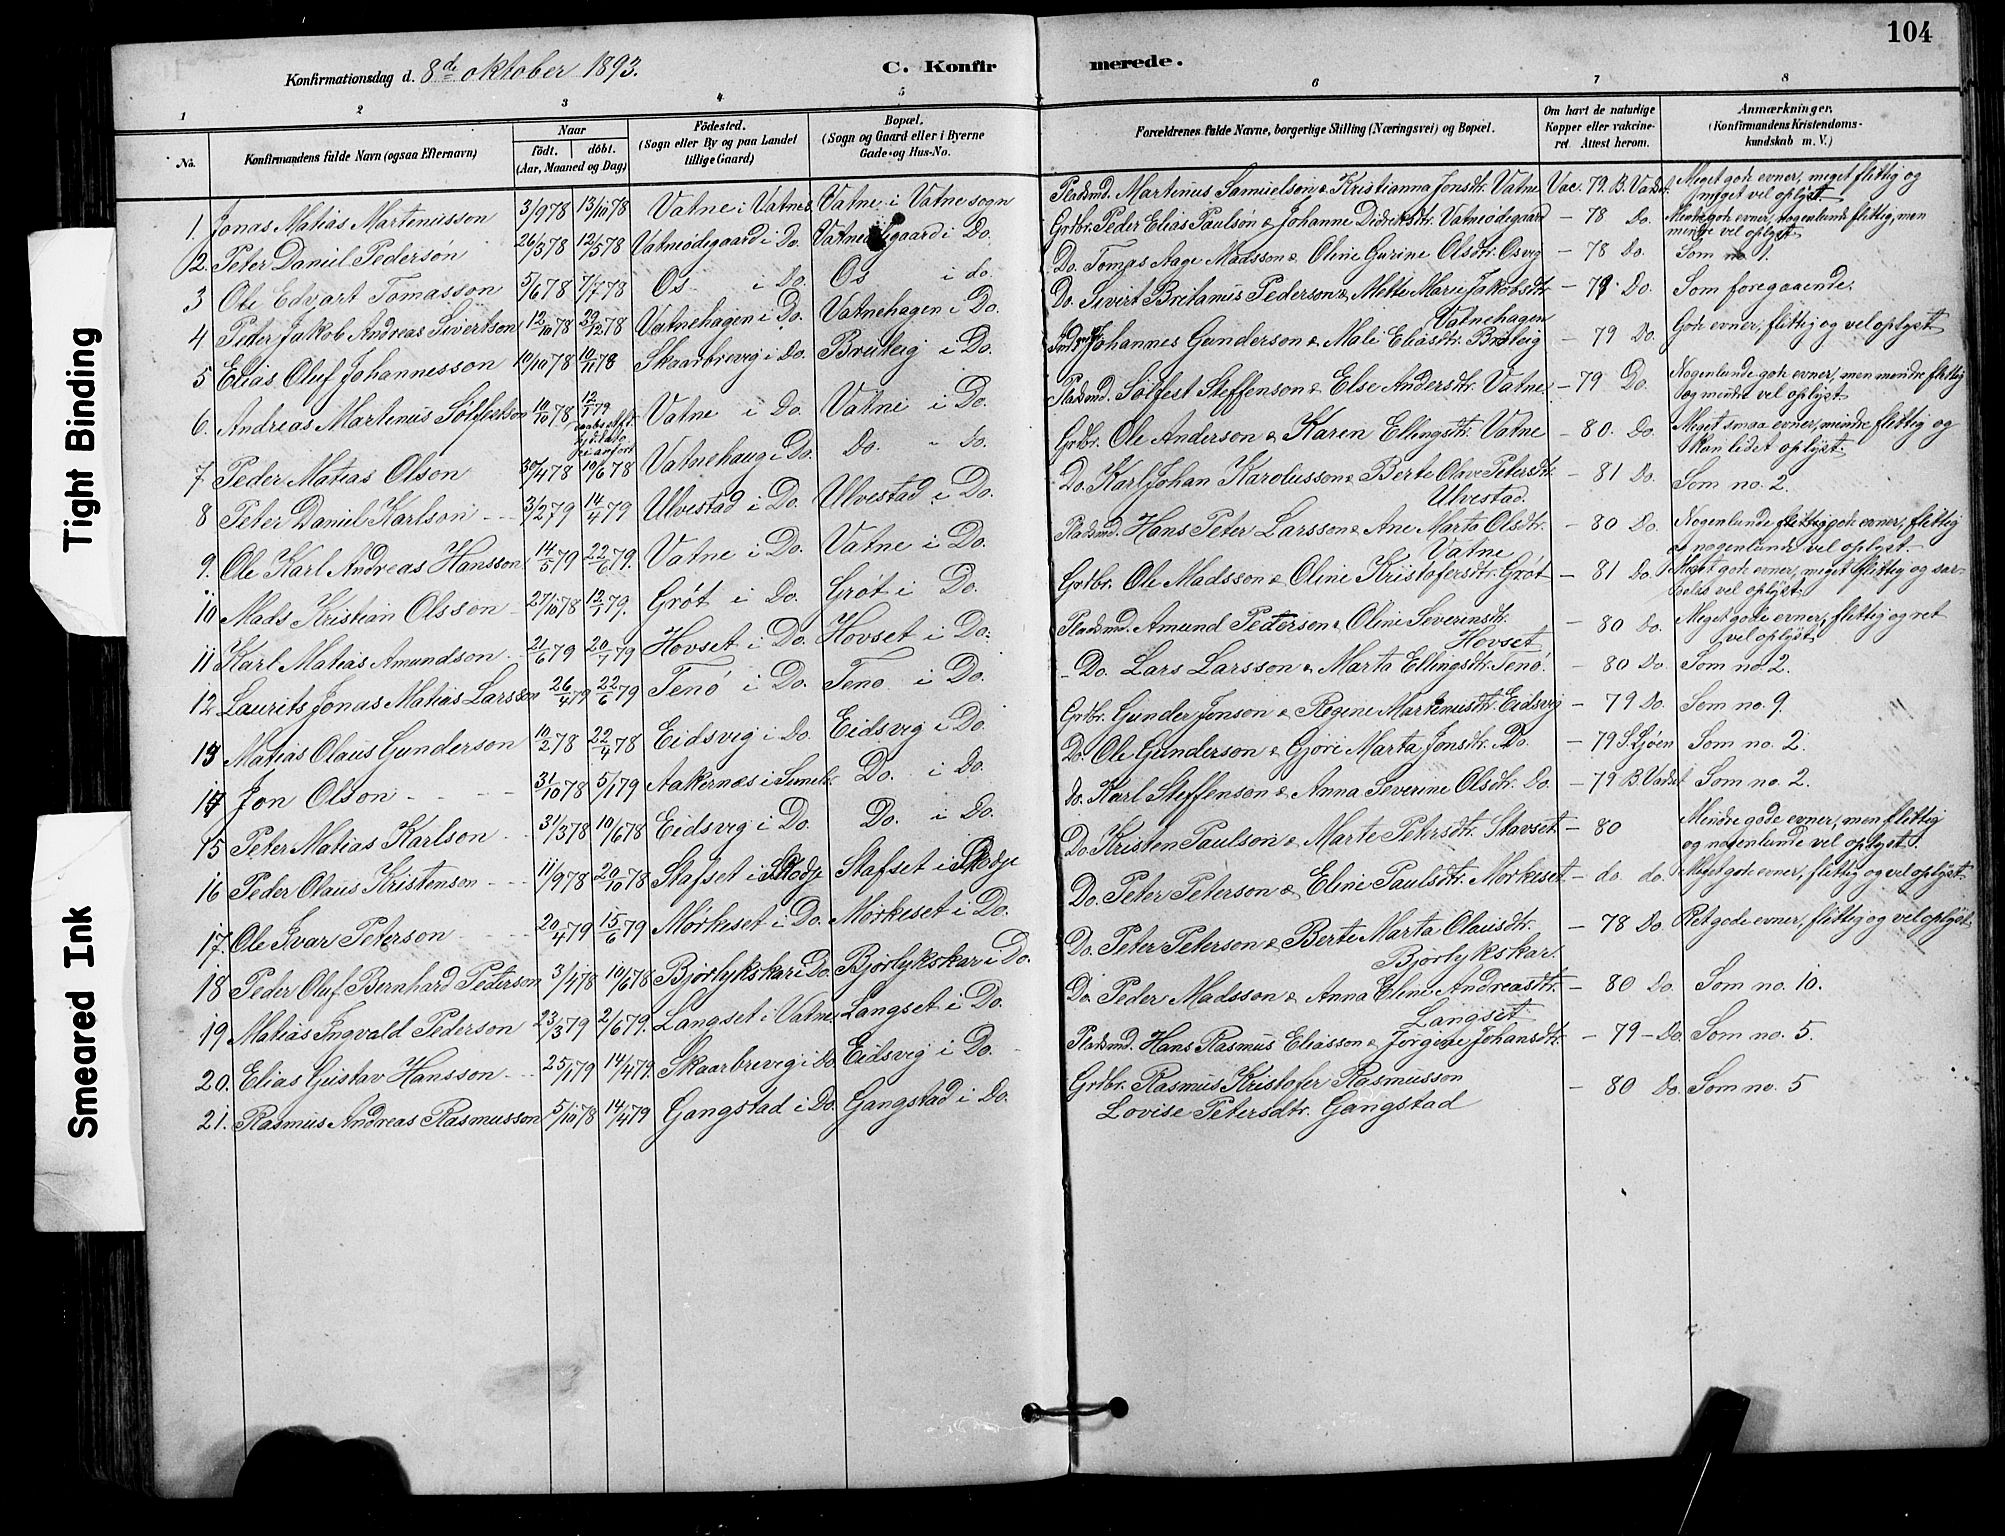 104
Konfirmationsdag d. 8de oktober 1893.
C. Konfir merede.
1 2 3 4 5 6 7 8
No. Konfirmandens fulde Navn (ogsaa Efternavn) Naar födt. döbt. (Aar, Maaned og Dag) Födested. (Sogn eller By og paa Landet tillige Gaard) Bopæl. (Sogn og Gaard eller i Byerne Gade- og Hus-No. Forældrenes fulde Navne, borgerlige Stilling (Næringsvei) og Bopæl. Om havt de naturlige Kopper eller vakcineret Attest herom. Anmærkninger. (Konfirmandens Kristendomskundskab m. V.)
1. Jonas Matias Martenusson 3/9 78 13/10 78 Vatne i Vatne Vatne i Vatne sogn Pladsmd. Martenus Samuelson & Kristianna Jonsdtr. Vatne Vac. 79. B. Vadset Meget gode evner, meget flittig og meget vel oplyst
2. Peter Daniel Pederson 26/3 78 12/5 78 Vatneødegaard i Do. Vatneødegaard i Do. Grdbr. Peder Elias Paulson & Johanne Didriksdtr. Vatneødegaard - 78 Do. Mindre gode evner, nogenlunde flittig, men mindre vel oplyst
3 Ole Edvart Tomasson 5/6 78 7/7 78 Os i Do. Os i do. Do. Tomas Aage Madsson & Oline Gurine Olsdtr. Osvig - 78 Do. Som no 1.
4 Peder Jakob Andreas Sivertson 12/10 78 29/12 78 Vatnehagen i Do. Vatnehagen i Do. Do. Sivert Britanus Pederson & Mette Marie Jakobsdtr. Vatnehagen - 79 Do. Som foregaaende.
5 Elias Oluf Johannesson 10/10 78 10/11 78 Skaarbrevig i Do. Bruleig i Do. Johannes Gunderson & Mali Eliasdtr. Bruleig - 79 Do. Gode evner, flittig og vel oplyst
6. Andreas Martenus Solfestson 10/10 78 12/1 79 Vatne i Do. Vatne i Do. Pladsmd. Solfest Steffenson & Else Andersdtr. Vatne. - 79 Do. Nogenlunde gode evner, men mindre flittig og mindre vel oplyst
7 Peder Matias Olson 30/4 78 10/6 78 Vatnehaug i Do. Do. " Do. Grdbr. Ole Anderson & Karen Ellingsdtr. Vatne - 80. Do. Meget smaa evner, mindre flittig og kun lidet oplyst.
8 Peter Daniel Karlson 3/2 79 14/4 79 Ulvestad i Do. Ulvestad i Do. Do. Karl Johan Karolusson & Berte Olave Petersdtr. Ulvestad. - 81 Do. Som no. 2.
9. Ole Karl Andreas Hansson 14/5 79 22/6 79. Vatne i Do. Vatne i Do. Pladsmd. Hans Peter Larsson & Ane Marta Olsdtr. Vatne - 80 Do. Nogenlunde gode evner, flittig og nogenlunde vel oplyst.
10 Mads Kristian Olsson 27/10 78 12/1 79. Grøt i Do. Grøt i Do. Grdbr. Ole Madsson & Oline Kristofersdtr. Grøt - 81 Do. Meget gode evner, meget flittig og særdeles vel oplyst.
11 Karl Matias Amundson 21/6 79 20/7 79 Hovset i Do. Hovset i Do. Pladsmd. Amund Pederson & Oline Severinsdtr. Hovset - 80 Do. Meget gode evner, flittig og ret vel oplyst
12 Laurits Jonas Matias Larsson 26/4 79 22/6 79 Tenø i Do. Tenø i Do. Do. Lars Larsson & Marta Ellingsdtr. Tenø. - 80 Do. Som no. 2.
13 Matias Olaus Gunderson 10/2 78 22/4 78 Eidsvig i Do. Eidsvig i Do. Grdbr. Gunder Jonson & Regine Martinusdtr. Eidsvig - 79 Do. Som no. 9.
14 Jon Olson 31/10 78 5/1 79 Aakernæs i Sunelv. Do. i Do. Do. Ole Gunderson & Gjøri Marta Jonsdtr. Do. - 79 S. Sjøen Som no. 2.
15 Peter Matias Karlson 31/3 78 10/6 78 Eidsvig i Do. Do. i Do. Do. Karl Steffenson & Anna Severine Olsdtr. Do. - 79 B. Vadset Som no. 2.
16 Peder Olaus Kristenson 11/9 78 20/10 78 Stafset i Skodje Stafset i Skodje Do. Kristen Paulson & Marte Petersdtr. Stavset - 80 Mindre gode evner, men flittig og nogenlunde vel oplyst.
17. Ole Ivar Peterson 20/4 79 15/6 79 Mørkeset i Do. Mørkeset i Do. Do. Peter Peterson & Eline Paulsdtr. Mørkeset - do. do. Meget gode evner, flittig og vel oplyst
18 Peder Oluf Bernhard Peterson 3/4 78 10/6 78 Bjørlykskar i Do. Bjørlykskar i Do. Do. Peter Peterson & Berte Marta Olausdtr. Bjørlykskar. - 78 Do. Ret gode evner, flittig og vel oplyst
19 Matias Ingvald Pederson 23/3 79 2/6 79. Langset i Vatne Langset i Do. Do. Peder Madsson & Anna Eline Andreasdtr. Langset - 80 Do. Som no. 10.
20. Elias Gustav Hansson 25/1 79 14/4 79. Skaarbrevig i Do. Eidsvig i Do. Pladsmd. Hans Rasmus Eliasson & Jørgine Johansdtr. - 79 - Do. Som no. 5.
21. Rasmus Andreas Rasmusson 5/10 78 14/4 79 Gangstad i Do. Gangstad i Do. Grdbr. Rasmus Kristofer Rasmusson Lovise Petersdtr. Gangstad - 80 Do. Som no. 5
Tight Binding
Smeared Ink